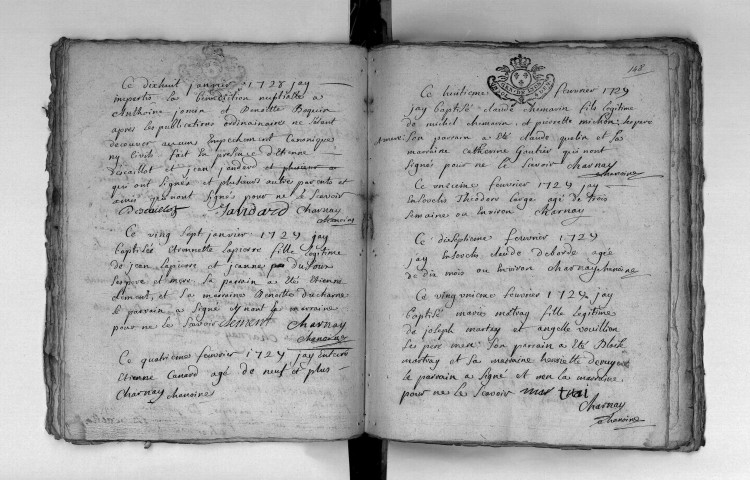 Ce dixhuit janvier 1729 jay
impertis la benediction nuptialle a
Anthoine jomin et Benoitte Boquin
apres les publications ordinaires ne s'etant
decouver aucuns Empechement Canoniques
ny Civils fait En presence d'Etienne
Descaillot et jean jandard et plusieurs
qui ont signés et plusieurs autres parents et
amis qui n'ont signés pour ne le scavoir
Descaillot Jandard Charnay
chanoine
Ce vingt sept janvier 1729 jay
baptisée etiennette lapierre fille legitime
de jean lapierre et jeanne du four
ses pere et mere. sa parrain a étés etienne
clement, et sa marraine Benoitte ducharne
le parrain a signé et non la marraine
pour ne les scavoir clement Charnay
chanoine
Ce quatrieme fevrier 1729 jay Enterré
Etienne Canard agé de neuf et plus
Charnay chanoines
148
Ce huitieme fevrier 1729
jay baptisé claude Humarin fils legitime
de michel humarin et pierrette michon, ses pere
et mere. Son parrain a été claude qualin et sa
marraine catherine Gautier qui n'ont
signés pour ne le scavoir Charnay
chanoine
Ce onzieme fevrier 1729 jay
Ensevelis Theodore large agé de trois
semaine ou Environ Charnay
Ce dixseptieme fevrier 1729
jay Ensevelis claude deborde agée
de dix mois ou Environ Charnay chanoine
Ce vingt unieme fevrier 1729 jay
baptisé marie matray fille legitime
de joseph matray et angelle vouillion
ses pere mere Son parrain a été Blaise
matray et sa marraine henriette
le parrain a signé et non la marraine
pour ne le scavoir
Charnay
chanoine